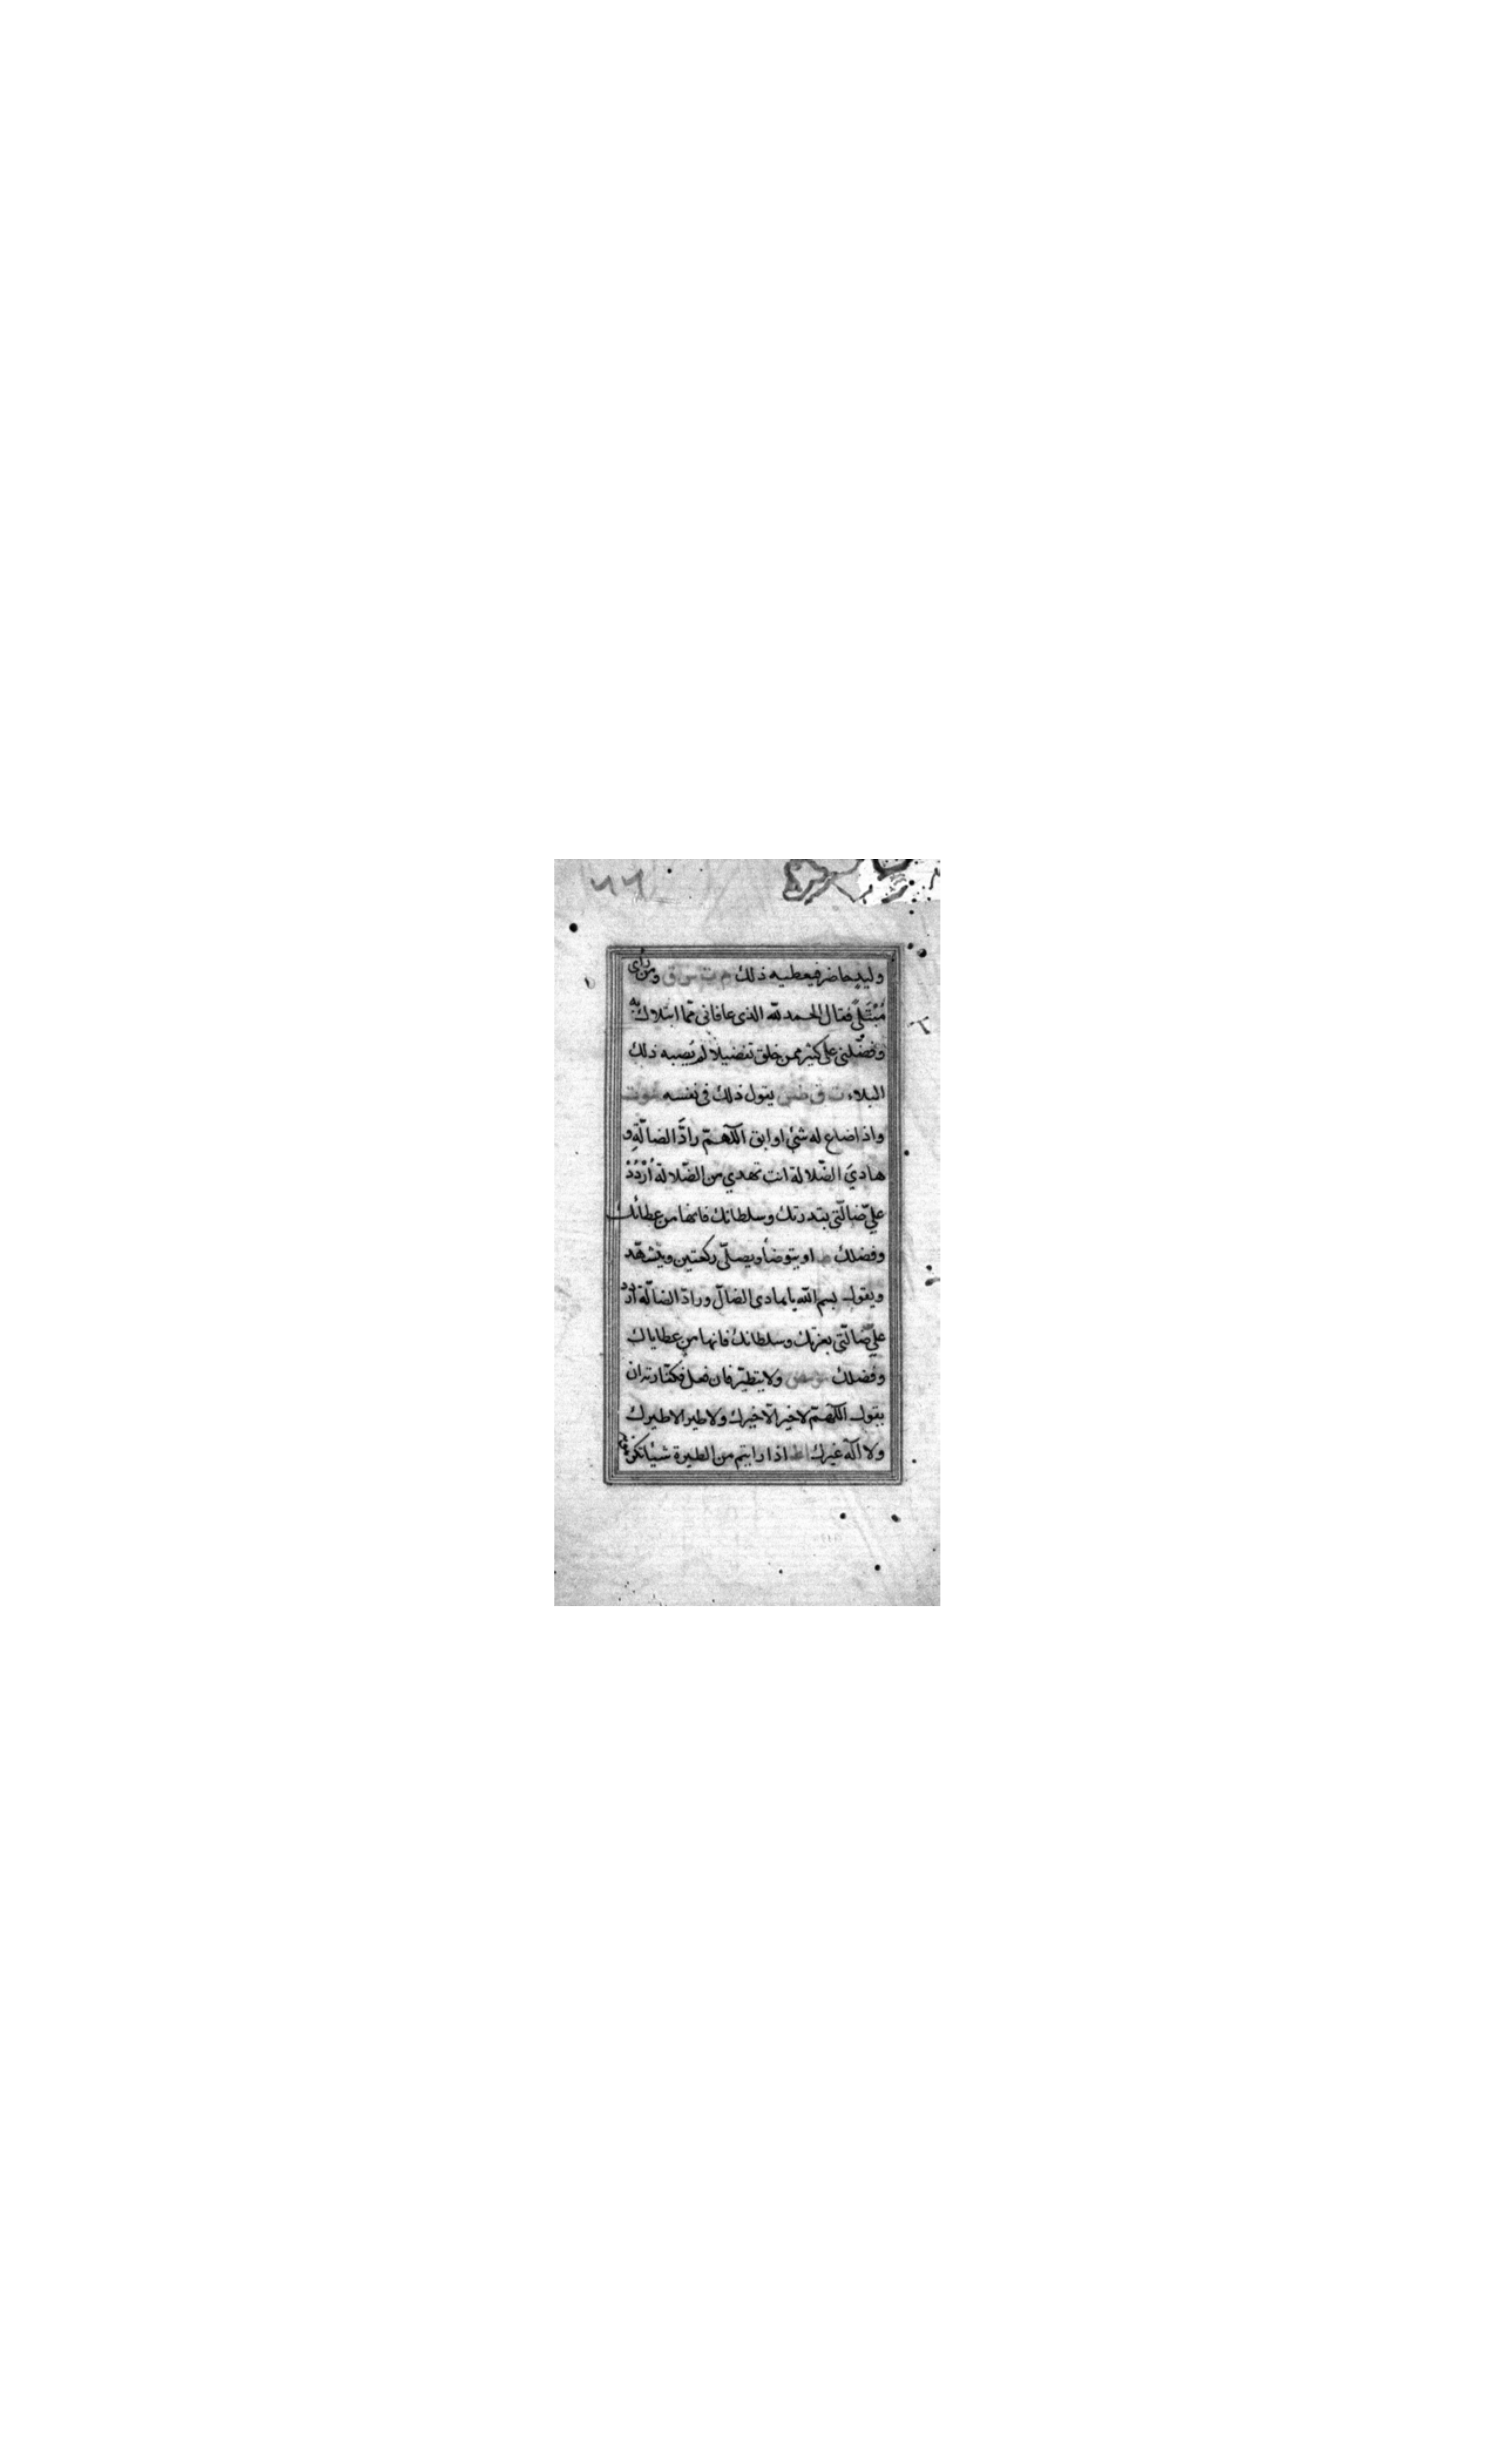 ٦٦
وليد حاضر فيعطيه ذلك م ت س ق ومن رأى
مُبْتَلًى فقال الحمد لله الذى عافانى مما ابتلاك به
وفضّلنى على كثير ممن خلق تفضيلا لم يُصبه ذلك
البلاء ت ق طس يقول ذلك فى نفسه مو ت
واذا ضاع له شئ او ابق اللهمّ رادَّ الضالّةِ و
هاديَ الضّلالة انت تهدي من الضّلالة اُرْدُدْ
عليّ ضالّتى بقدرتك وسلطانك فانها من عطائك
وفضلك ط او يتوضأ ويصلّى ركعتين ويتشهّد
ويقول بسم الله يا هادى الضالّ ورادّ الضالّة اردد
عليّ ضالّتى بعزتك وسلطانك فانها من عطاياك
وفضلك مو مص ولا يتطيّر فان فعل فكفّارته ان
يقول اللهمّ لا خير الّا خيرك ولا طير الا طيرك
ولا اله غيرك ا ط اذا رايتم من الطيرة شيئا تكرهونه